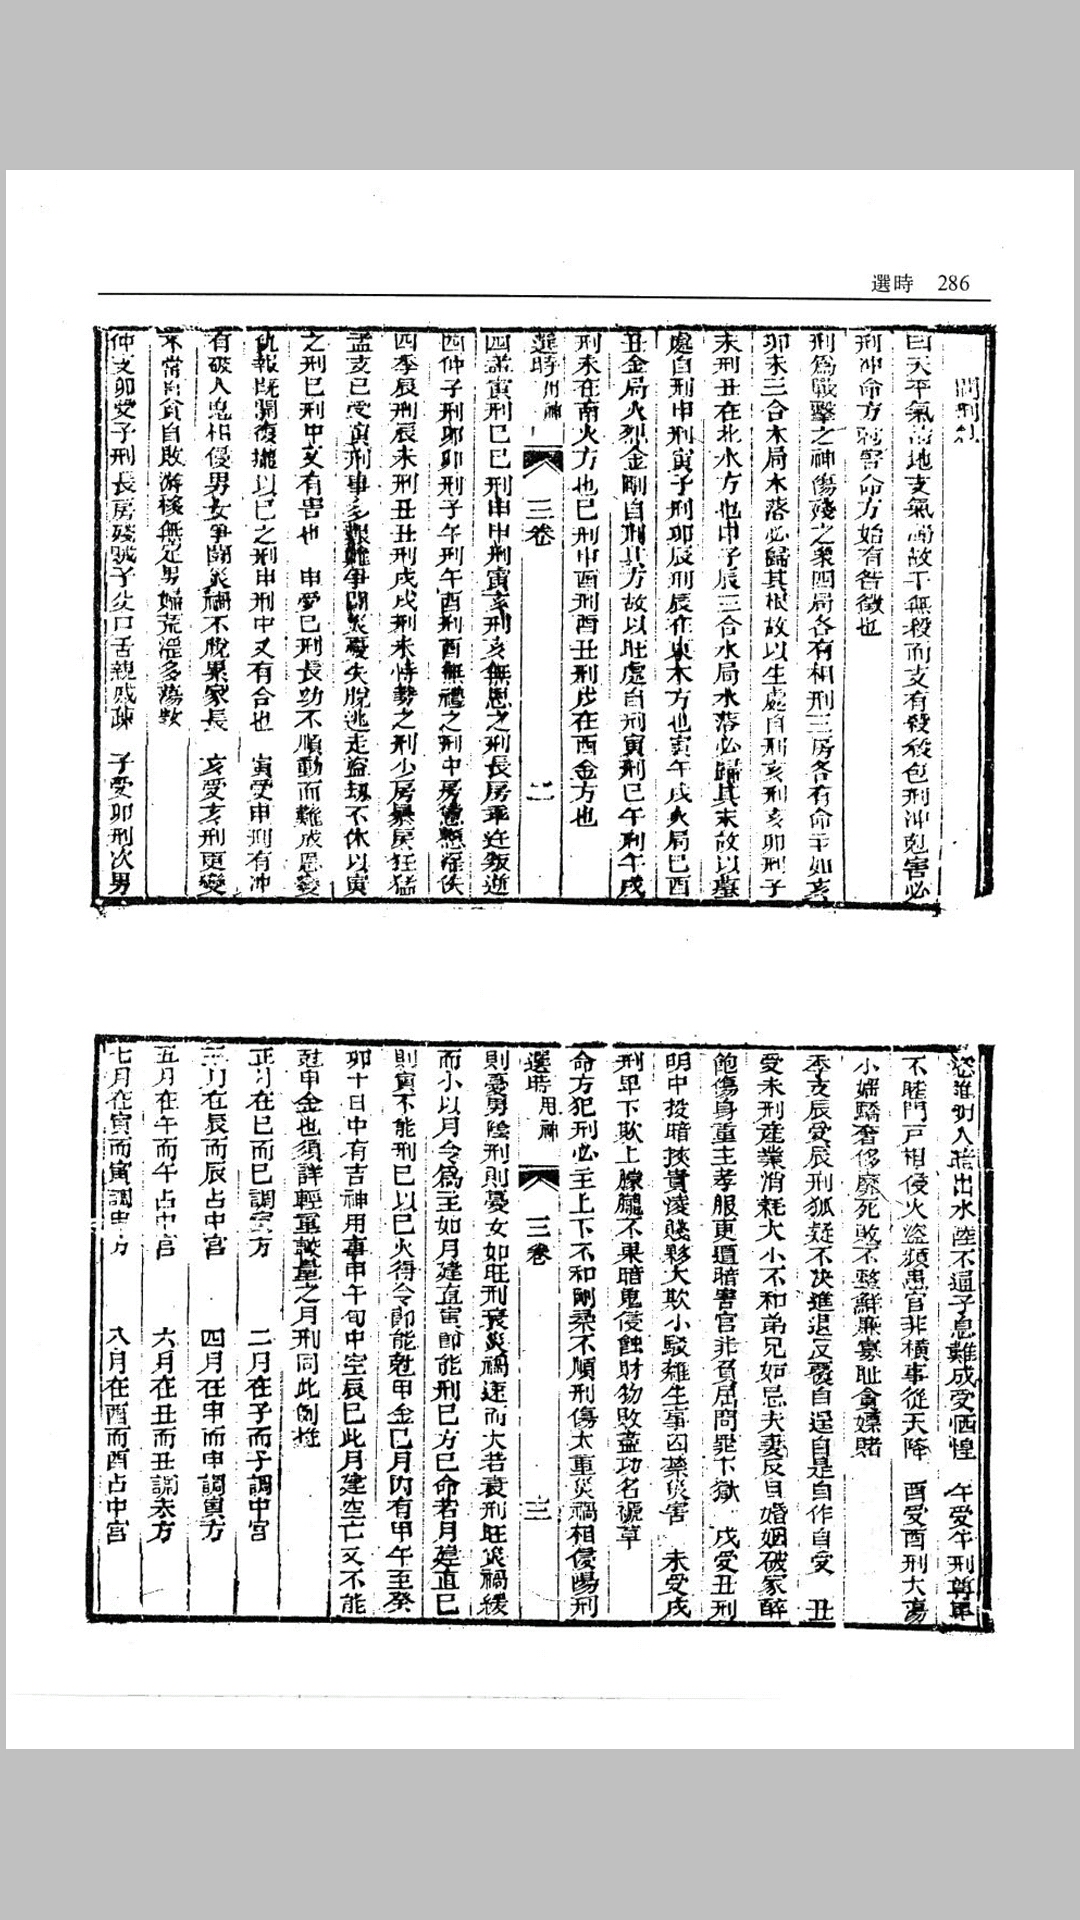 選時 286
問刑
曰天干氣清地支氣濁故干無殺而支有殺殺包刑沖剋害必
刑冲命方剋害命方始有咎徵也
刑爲戰擊之神傷殘之象四局各有相刑三房各有命主如亥
卯未三合木局木落必歸其根故以生處自刑亥刑亥卯刑子
未刑丑在北水方也申子辰三合水局水落必歸其末故以墓
處自刑申刑寅子刑卯辰刑辰在東木方也寅午戌火局巳酉
丑金局火烈金剛自刑其方故以旺處自刑寅刑巳午刑午戌
刑未在南火方也巳刑申酉刑酉丑刑戌在西金方也
選時 用神 三卷 二
四孟寅刑巳巳刑申申刑寅亥刑亥無恩之刑長房乖迕叛逆
四仲子刑卯卯刑子午刑午酉刑酉無禮之刑中房愆淫佚
四季辰刑辰未刑丑丑刑戌戌刑未恃勢之刑少房暴戾狂猛
孟支巳受寅刑事多艱難爭鬪災憂失脫逃走盜刼不休以寅
之刑巳刑中又有害也 申受巳刑長幼不順動而難成恩變
仇報旣開復攏以巳之刑申刑中又有合也 寅受申刑有冲
有破人鬼相侵男女爭鬪災禍不脫累家長 亥受亥刑更變
不常貪自敗游移無定男婦荒淫多蕩敗
仲支卯受子刑長房殘子女口舌親戚疎 子受卯刑次男
人出水陸不通子息難成受恓惶 午受午刑尊卑
不睦門戸相侵火盜頻患官非横事從天降 酉受酉刑大蕩
小婦驕奢侈靡死敗不整鮮廉寡耻貪嫖賭
季支辰受辰刑狐疑不决進退反覆自逞自是自作自受 丑
受未刑産業消耗大小不和弟兄如忌夫妻反目婚姻破家醉
飽傷身重主孝服更遭暗害官非負屈問罪下獄 戌受丑刑
明中投暗挾貴淩賤夥大欺小駁雜生事囚禁災害 未受戌
刑卑下欺上朦朧不果暗鬼侵蝕財物敗蓋功名褫革
命方犯刑必主上下不和剛柔不順刑傷太重災禍相侵陽刑
選時 用神 三卷 三
則憂男陰刑則憂女如旺刑衰災禍速而大若衰刑旺災禍緩
而小以月令爲主如月建直寅節能刑巳方巳命若月建直巳
則寅不能刑巳以巳火得令節能尅甲金巳月內有甲午至癸
卯十日中有吉神用事申午旬中空辰巳此月建空亡又不能
尅申金也須詳輕重較量之月刑同此例推
正月在巳而巳調寅方 二月在子而子調中宮
三月在辰而辰占中宮 四月在申而申調寅方
五月在午而午占中宮 六月在丑而丑調未方
七月在寅而寅調申方 八月在酉而酉占中宮